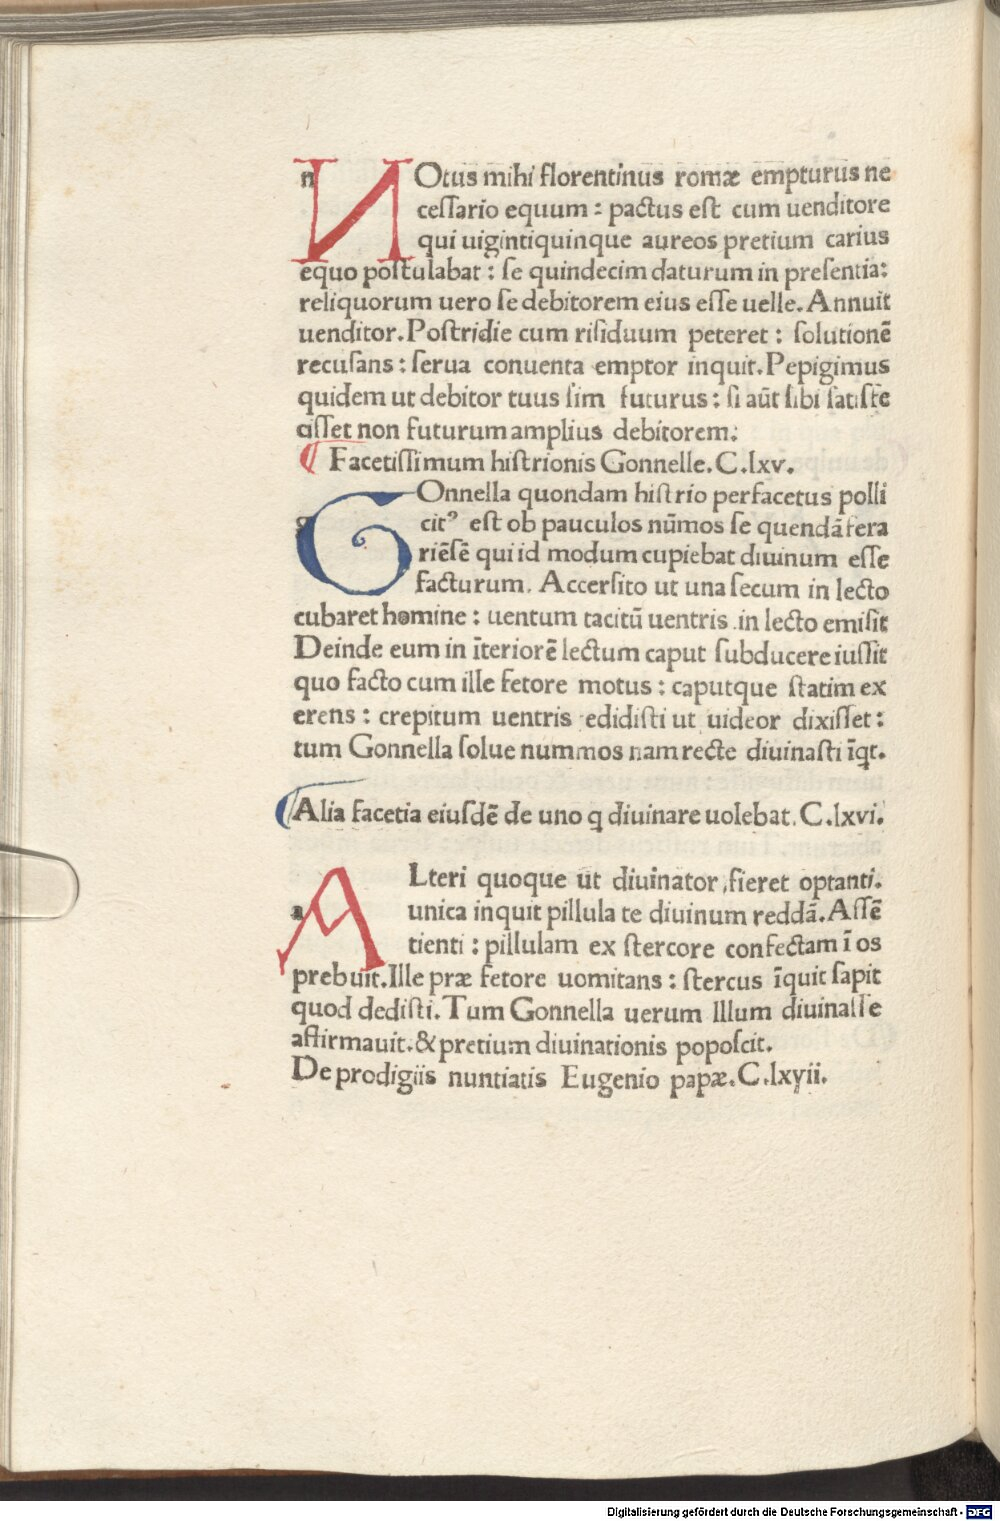 NOtus mihi florentinus romæ empturus ne
ceſſario equum : pactus eſt cum uenditore
qui uigintiquinque aureos pretium carius
equo poſtulabat : ſe quindecim daturum in preſentia:
reliquorum uero ſe debitorem eius eſſe uelle. Annuit
uenditor. Poſtridie cum riſiduum peteret : ſolutionē
recuſans : ſerua conuenta emptor inquit. Pepigimus
quidem ut debitor tuus ſim futurus : ſi aūt ſibi ſatiſfe
ciſſet non futurum amplius debitorem:
Facetiſſimum hiſtrionis Gonnelle. C. lxv.
GOnnella quondam hiſtrio perfacetus polli
citꝰ eſt ob pauculos nūmos ſe quendā fera
riēſē qui id modum cupiebat diuinum eſſe
facturum. Accerſito ut una ſecum in lecto
cubaret homine : uentum tacitū uentris in lecto emiſit
Deinde eum in īteriorē lectum caput ſubducere iuſſit
quo facto cum ille fetore motus : caputque ſtatim ex
erens : crepitum uentris edidiſti ut uideor dixiſſet :
tum Gonnella ſolue nummos nam recte diuinaſti īqt.
Alia facetia eiuſdē de uno q diuinare uolebat. C. lxvi.
ALteri quoque ut diuinator fieret optanti.
unica inquit pillula te diuinum reddā. Aſſē
tienti : pillulam ex ſtercore confectam ī os
prebuit. Ille præ fetore uomitans : ſtercus īquit ſapit
quod dediſti. Tum Gonnella uerum Illum diuinaſſe
affirmauit. & pretium diuinationis popoſcit.
De prodigiis nuntiatis Eugenio papæ. C. lxvii.
Digitalisierung gefördert durch die Deutsche Forschungsgemeinschaft - DFG